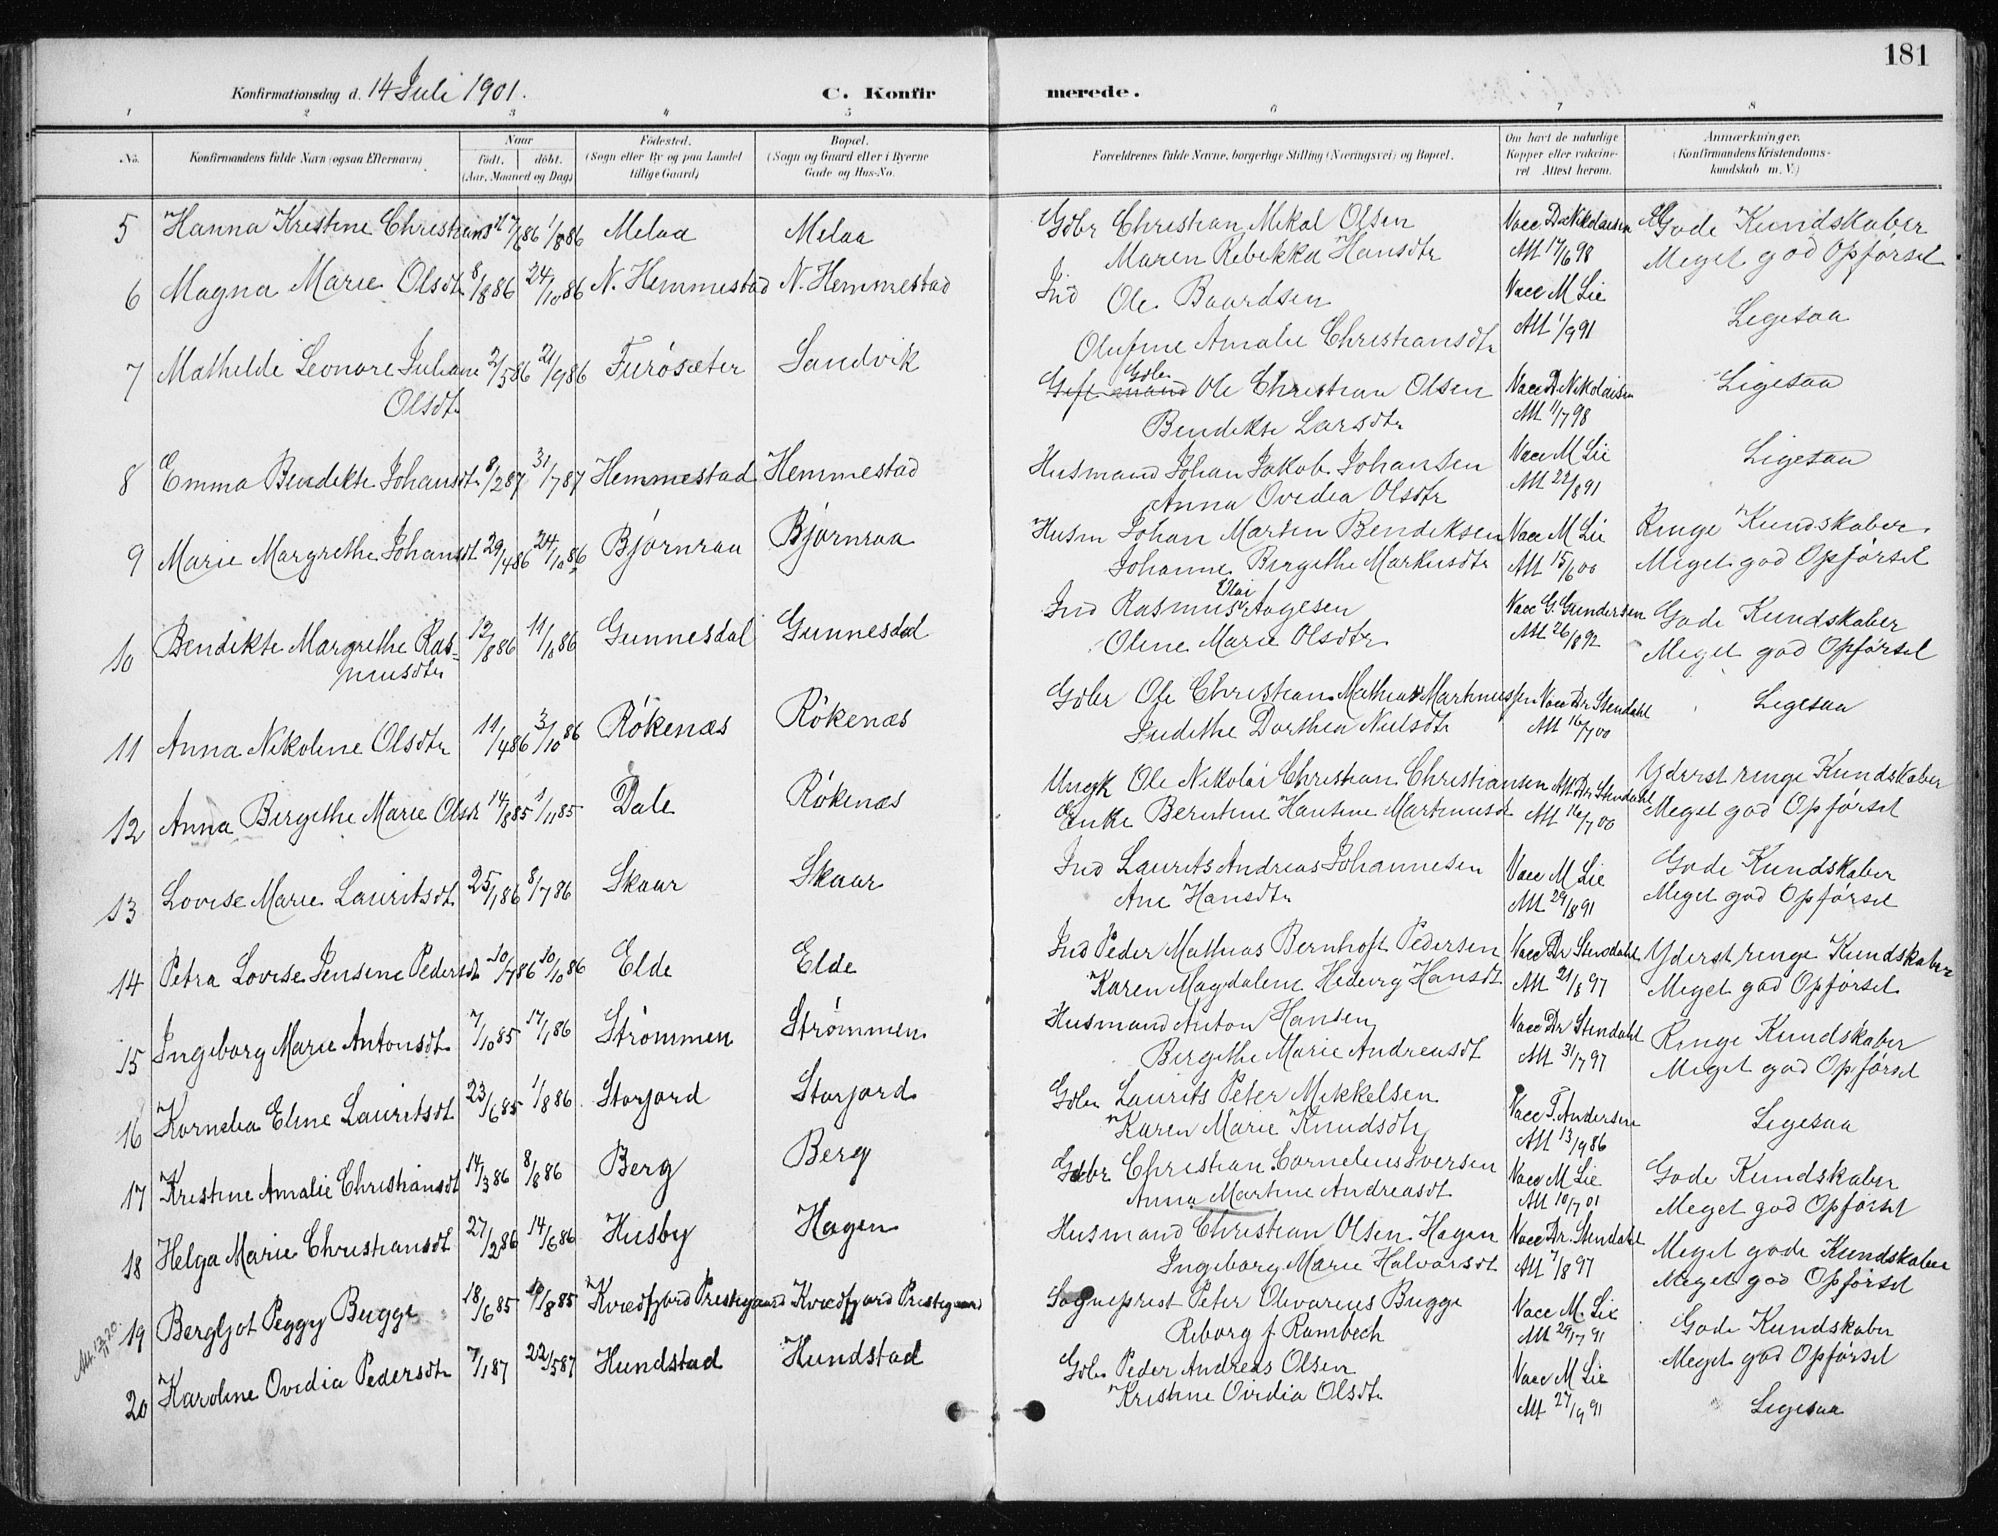 181
Konfirmationsdag d. 14 Juli 1901.
C. Konfirmerede.
1 2 3 4 5 6 7 8
No. Konfirmandens fulde Navn (ogsaa Efternavn) Naar födt. döbt. (Aar, Maaned og Dag) Födested. (Sogn eller By og paa Landet tillige Gaard) Bopæl. (Sogn og Gaard eller i Byerne Gade og Hus-No. Forældrenes fulde Navne, borgerlige Stilling (Næringsvei) og Bopæl. Om havt de naturlige Kopper eller vakcineret Attest herom. Anmærkninger. (Konfirmandens Kristendomskundskab m. V.)
5 Hanna Kristine Christians 1/8 86 Melaa Melaa Gdbr Christian Mikal Olsen Vacc Dr Nikolaisen Gode Kundskaber
Maren Rebekka Hansdtr Att 17/6 98 Meget god Opførsel
6 Magna Marie Olsdt 8/8 86 24/10 86 N. Hemmestad N. Hemmestad Ind Ole Baardsen Vacc M Lie
Olufine Amalie Christiansdtr Att 1/9 91 Ligesaa
7 Mathilde Leonore Juliane Olsdt. 2/5 86 21/9 86 Furøsæter Sandvik Gdbr Ole Christian Olsen Vacc Dr Nikolaisen Ligesaa
Bendikte Larsdtr Att 11/7 98
8 Emma Bendikte Johansdt 8/2 87 31/7 87 Hemmestad Hemmestad Husmand Johan Jakob Johansen Vacc M Lie Ligesaa
Anna Ovedia Olsdtr Att 22/8 91
9 Marie Margrethe Johansdt 29/4 86 24/10 86 Bjørnraa Bjørnraa Husm Johan Martin Bendiksen Vacc M Lie Ringe Kundskaber.
Johanne Birgithe Markusdtr Att 15/6 00 Meget god Opførsel
10 Bendikte Margrethe Rasmusdtr 12/8 86 11/10 86 Gunnesdal Gunnesdal Ind Rasmus Olai Aagesen Vacc G. Gundersen Gode Kundskaber
Oline Marie Olsdtr Att 26/8 92 Meget god Opførsel
11 Anna Nikoline Olsdtr 11/4 86 3/10 86 Røkenæs Røkenæs Gdbr Ole Christian Mathias Martinussen Vacc Dr Stendahl Ligesaa
Judithe Dorthea Nielsdtr Att 16/7 00
12 Anna Birgithe Marie Olsdt 14/8 85 1/11 85 Dale Røkenæs Ungk Ole Nikolai Christian Christiansen Att Dr Stendahl Yderst ringe Kundskaber
Enke Berntine Hansine Martinusdt Att 16/7 00 Meget god Opførsel
13 Lovise Marie Lauritsdt 25/1 86 8/7 86 Skaar Skaar Ind Laurits Andreas Johannesen Vacc M Lie Gode Kundskaber
Ane Hansdtr Att 29/8 91 Meget god Opførsel
14 Petra Lovise Jensine Pedersdt 20/7 86 10/10 86 Elde Elde Ind Peder Mathias Bernhoft Pedersen Vacc Dr Stendahl Yderst ringe Kundskaber
Karen Magdalene Hedevig Hansdt Att 21/8 97 Meget god Opførsel
15 Ingeborg Marie Antonsdt. 7/10 85 17/1 86 Strømmen Strømmen Husmand Anton Hansen Vacc Dr Stendahl Ringe Kundskaber
Birgithe Marie Andreasdt Att 31/7 97 Meget god Opførsel
16 Kornelia Eline Lauritsdt. 23/6 85 1/8 86 Storjord Storjord Gdbr Laurits Peter Mikkelsen Vacc T. Andersen Ligesaa
Karen Marie Knudsdtr Att 13/9 86
17 Kristine Amalie Christiansdt 14/3 86 8/8 86 Berg Berg Gdbr Christian Cornelius Iversen Vacc M Lie Gode Kundskaber
Anna Martine Andreasdt. Att 10/7 01 Meget god Opførsel
18 Helga Marie Christiansdt 27/2 86 14/6 86 Husby Hagen Husmand Christian Olsen Hagen Vacc Dr. Stendahl Meget gode Kundskaber
Ingeborg Marie Halvorsdt Att 7/8 97 Meget god Opførsel
19 Bergljot Peggy Bugge 18/6 85 /8 85 Kvædfjord Prestegaard Kvædfjord Prestegaard Sogneprest Peter Olivarius Bugge Vacc M. Lie Gode Kundskaber
Riborg f Rambech Att 29/7 91 Meget god Opførsel
20 Karoline Ovidia Pedersdtr 7/1 87 22/5 87 Hundstad Hundstad Gdbr Peder Andreas Olsen Vacc M Lie Ligesaa
Kristine Ovidia Olsdtr Att 27/9 91